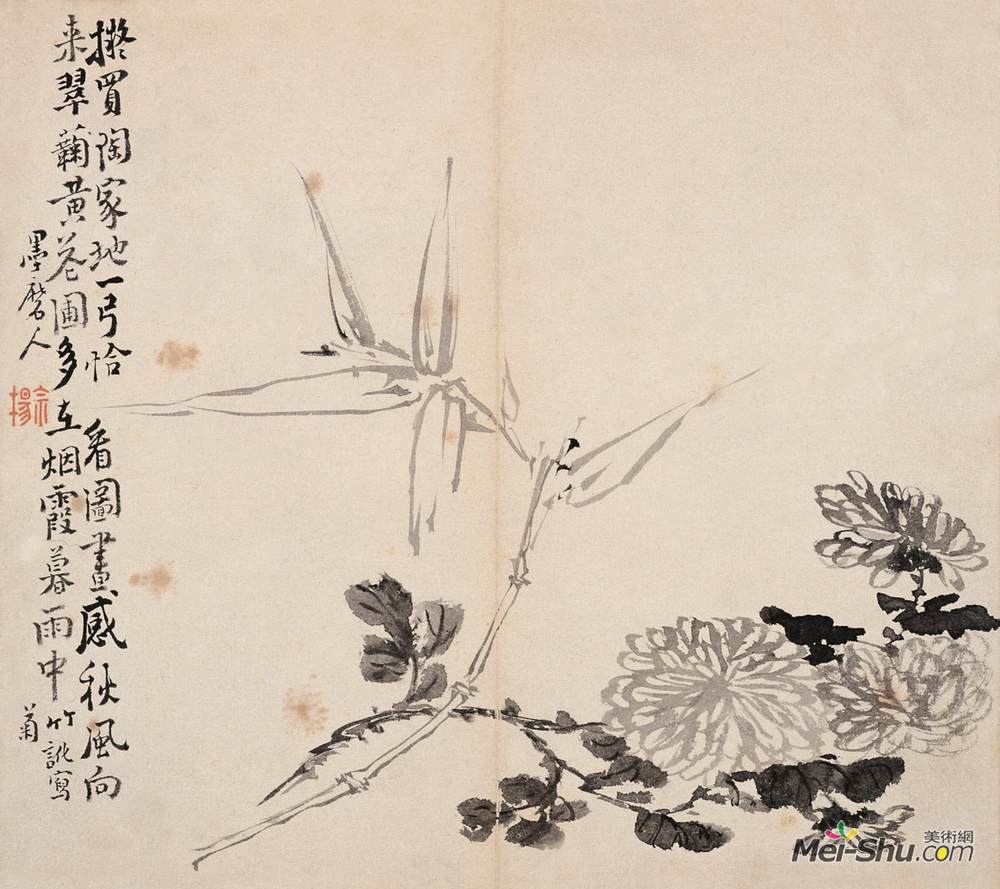 擬買陶家地一弓恰看圖畫感秋風向
来翠蘜黃花圃多在烟霞暮雨中竹寫
菊
墨磨人
宗揚
美術網
Mei-Shu.com